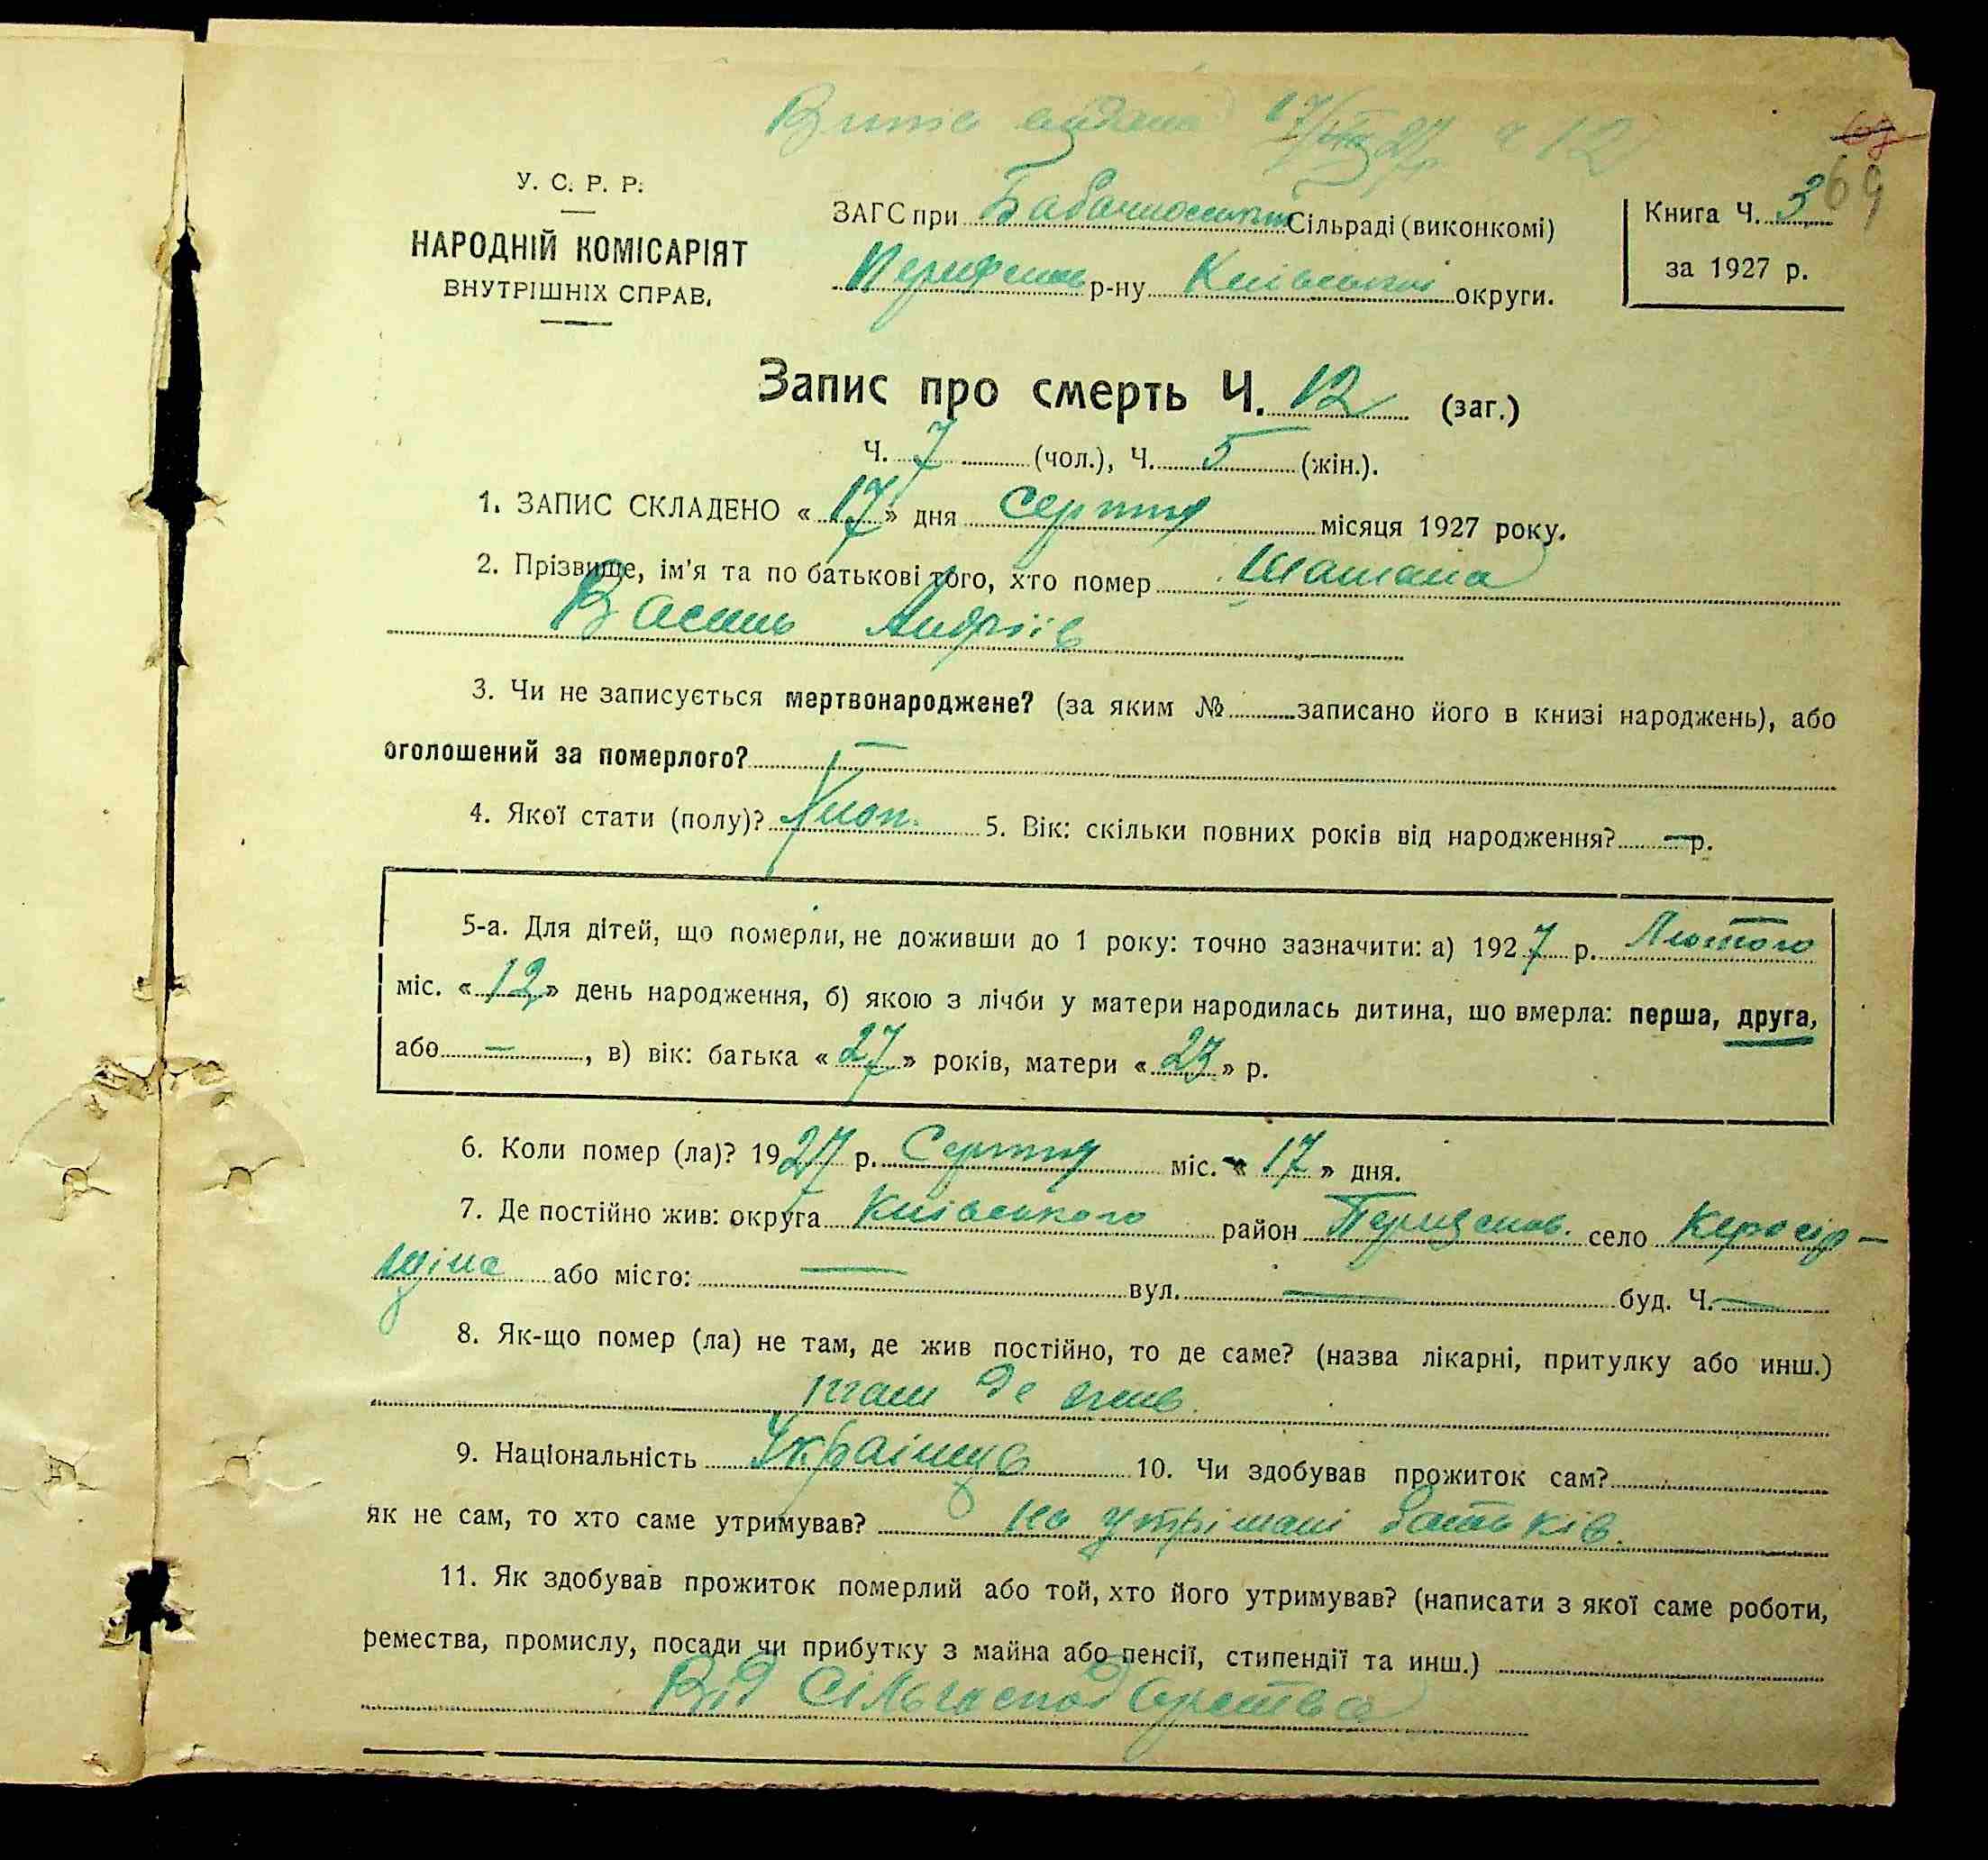 Випис видано 17/VIII 27 р. ч 12
69
У. С. Р. Р.
НАРОДНІЙ КОМІСАРІЯТ
ВНУТРІШНІХ СПРАВ.
ЗАГС при Сільраді (виконкомі)
р-ну Київської округи.
Книга Ч. 3
за 1927 р.
Запис про смерть Ч. 12 (заг.)
Ч. 7 (чол.), Ч. 5 (жін.).
1. ЗАПИС СКЛАДЕНО « 17 » дня Серпня місяця 1927 року.
2. Прізвище, ім'я та по батькові того, хто помер
Василь Андріїв
3. Чи не записується мертвонароджене? (за яким № записано його в книзі народжень), або
оголошений за померлого? —
4. Якої стати (полу)? Хлоп. 5. Вік: скільки повних років від народження? — р.
5-а. Для дітей, що померли, не доживши до 1 року: точно зазначити: а) 1927 р. Лютого
міс. « 12 » день народження, б) якою з лічби у матери народилась дитина, шо вмерла: перша, друга,
або — , в) вік: батька « 27 » років, матери « 23 » р.
6. Коли помер (ла)? 1927 р. Серпня міс. « 17 » дня.
7. Де постійно жив: округа Київського район село
або місто: — вул. — буд. Ч. —
8. Як-що помер (ла) не там, де жив постійно, то де саме? (назва лікарні, притулку або инш.)
там де жив.
9. Національність Українець 10. Чи здобував прожиток сам?
як не сам, то хто саме утримував? на утрімані батьків.
11. Як здобував прожиток померлий або той, хто його утримував? (написати з якої саме роботи,
ремества, промислу, посади чи прибутку з майна або пенсії, стипендії та инш.)
Від Сільгосподарства